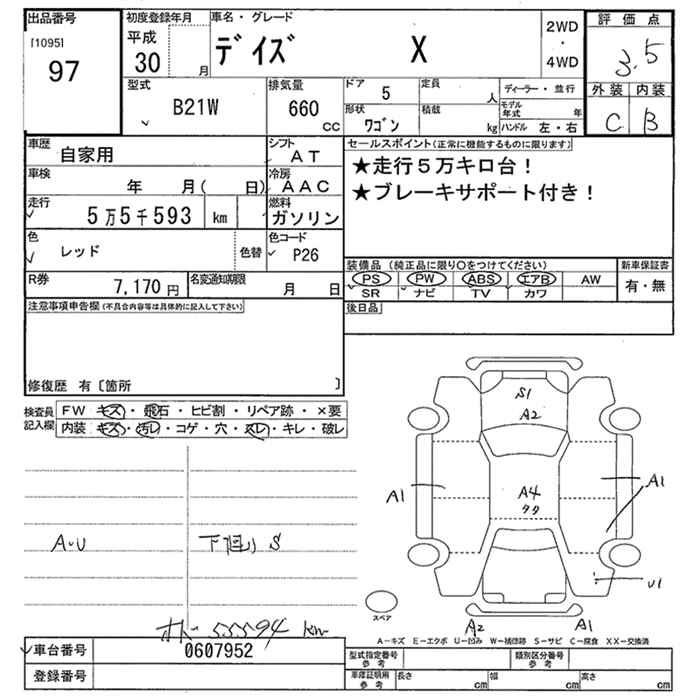 出品番号 初度登録年月 車名・グレード 2WD 評価点
[1095] 平成 デイズ X ・ 3.5
97 30 月 4WD
型式 排気量 ドア 5 定員 人 ディーラー・並行 外装 内装
B21W 660 cc 形状 ワゴン 積載 kg モデル年式 年 C B
ハンドル 左・右
車歴 自家用 シフト AT セールスポイント(正常に機能するものに限ります)
車検 年 月( 日) 冷房 AAC ★走行5万キロ台!
走行 5万5千593 km 燃料 ガソリン ★ブレーキサポート付き!
色 レッド 色替 色コード P26
R券 7,170円 名変通知期限 月 日 装備品(純正品に限り○をつけてください) 新車保証書
PS PW ABS エアB AW 有・無
SR ナビ TV カワ
注意事項申告欄(不具合内容等は具体的に記入して下さい) 後日品
修復歴 有〔箇所 〕
検査員記入欄 FW キズ・飛石・ヒビ割・リペア跡・×要
内装 キズ・汚レ・コゲ・穴・スレ・キレ・破レ
S1
A2
A1 A4 A1
タタ
A・U 下回り S
U1
スペア
A2 A1
オド-55594km
A-キズ E-エクボ U-凹み W-補修跡 S-サビ C-腐食 XX-交換済
車台番号 0607952 型式指定番号 参考 類別区分番号 参考
登録番号 車庫証明用 参考 長さ cm 幅 cm 高さ cm